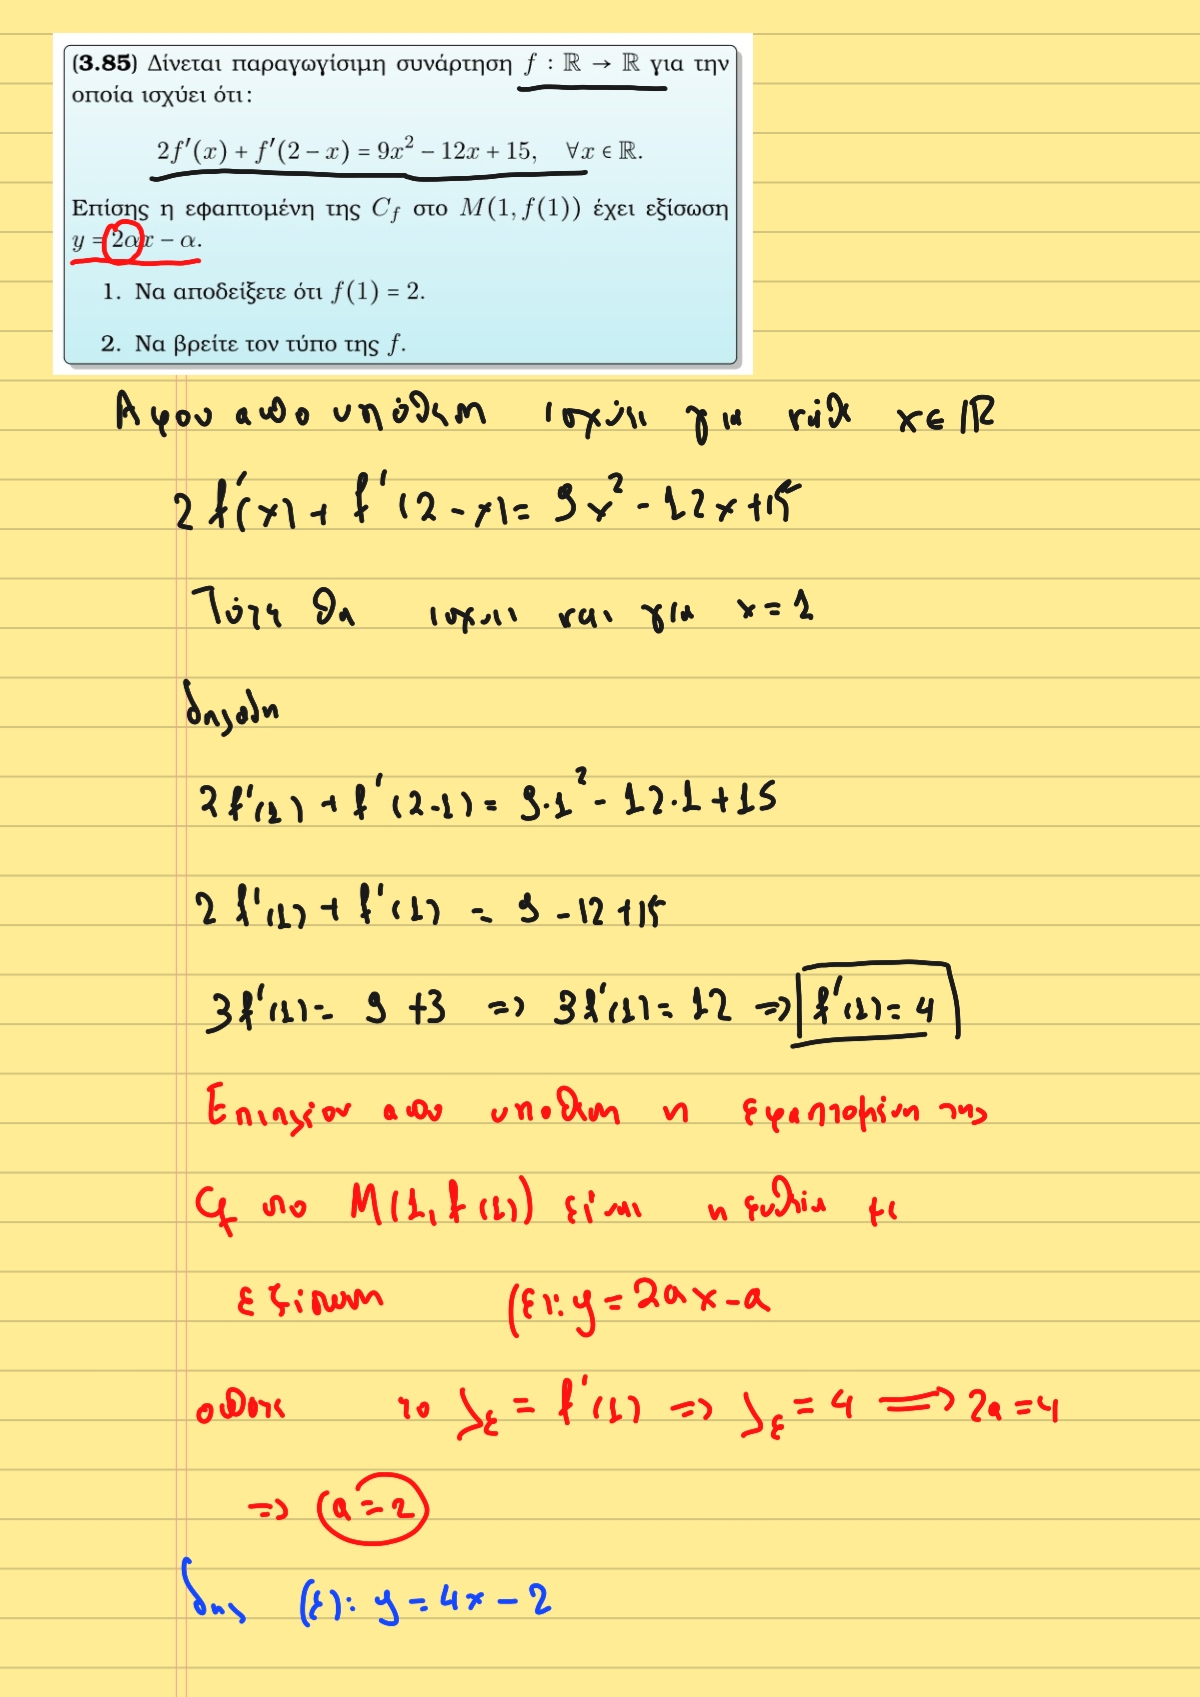 (3.85) Δίνεται παραγωγίσιμη συνάρτηση f : ℝ → ℝ για την
οποία ισχύει ότι:
2f′(x) + f′(2 − x) = 9x² − 12x + 15, ∀x ∈ ℝ.
Επίσης η εφαπτομένη της C_f στο M(1, f(1)) έχει εξίσωση
y = 2αx − α.
1. Να αποδείξετε ότι f(1) = 2.
2. Να βρείτε τον τύπο της f.
Αφου απο υπόθεση ισχύει για κάθε x ∈ ℝ
2f′(x) + f′(2 − x) = 9x² − 12x + 15
Τότε θα ισχυει και για x = 1
δηλαδη
2f′(1) + f′(2−1) = 9·1² − 12·1 + 15
2f′(1) + f′(1) = 9 − 12 + 15
3f′(1) = 9 + 3 ⇒ 3f′(1) = 12 ⇒ f′(1) = 4
Επιπλέον απο υποθεση η εφαπτομένη της
C_f στο M(1, f(1)) είναι η ευθεία με
εξίσωση (ε): y = 2αx − α
οποτε το λ_ε = f′(1) ⇒ λ_ε = 4 ⟹ 2α = 4
⇒ α = 2
δηλ (ε): y = 4x − 2